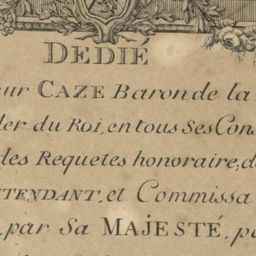 DEDIÉ
eur CAZE Baron de la
ller du Roi, en tous Ses Con
des Requetes honoraire, d
TTENDANT, et Commissa
par Sa MAJESTÉ, p